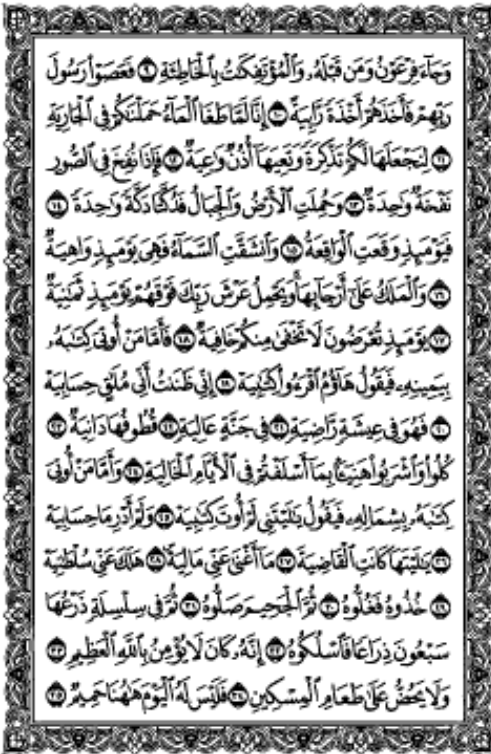 وَجَآءَ فِرْعَوْنُ وَمَن قَبْلَهُۥ وَٱلْمُؤْتَفِكَٰتُ بِٱلْخَاطِئَةِ ٩ فَعَصَوْا۟ رَسُولَ
رَبِّهِمْ فَأَخَذَهُمْ أَخْذَةً رَّابِيَةً ١٠ إِنَّا لَمَّا طَغَا ٱلْمَآءُ حَمَلْنَٰكُمْ فِى ٱلْجَارِيَةِ
١١ لِنَجْعَلَهَا لَكُمْ تَذْكِرَةً وَتَعِيَهَآ أُذُنٌ وَٰعِيَةٌ ١٢ فَإِذَا نُفِخَ فِى ٱلصُّورِ
نَفْخَةٌ وَٰحِدَةٌ ١٣ وَحُمِلَتِ ٱلْأَرْضُ وَٱلْجِبَالُ فَدُكَّتَا دَكَّةً وَٰحِدَةً ١٤
فَيَوْمَئِذٍ وَقَعَتِ ٱلْوَاقِعَةُ ١٥ وَٱنشَقَّتِ ٱلسَّمَآءُ فَهِىَ يَوْمَئِذٍ وَاهِيَةٌ
١٦ وَٱلْمَلَكُ عَلَىٰٓ أَرْجَآئِهَا وَيَحْمِلُ عَرْشَ رَبِّكَ فَوْقَهُمْ يَوْمَئِذٍ ثَمَٰنِيَةٌ
١٧ يَوْمَئِذٍ تُعْرَضُونَ لَا تَخْفَىٰ مِنكُمْ خَافِيَةٌ ١٨ فَأَمَّا مَنْ أُوتِىَ كِتَٰبَهُۥ
بِيَمِينِهِۦ فَيَقُولُ هَآؤُمُ ٱقْرَءُوا۟ كِتَٰبِيَهْ ١٩ إِنِّى ظَنَنتُ أَنِّى مُلَٰقٍ حِسَابِيَهْ
٢٠ فَهُوَ فِى عِيشَةٍ رَّاضِيَةٍ ٢١ فِى جَنَّةٍ عَالِيَةٍ ٢٢ قُطُوفُهَا دَانِيَةٌ ٢٣
كُلُوا۟ وَٱشْرَبُوا۟ هَنِيٓـًٔۢا بِمَآ أَسْلَفْتُمْ فِى ٱلْأَيَّامِ ٱلْخَالِيَةِ ٢٤ وَأَمَّا مَنْ أُوتِىَ
كِتَٰبَهُۥ بِشِمَالِهِۦ فَيَقُولُ يَٰلَيْتَنِى لَمْ أُوتَ كِتَٰبِيَهْ ٢٥ وَلَمْ أَدْرِ مَا حِسَابِيَهْ
٢٦ يَٰلَيْتَهَا كَانَتِ ٱلْقَاضِيَةَ ٢٧ مَآ أَغْنَىٰ عَنِّى مَالِيَهْ ٢٨ هَلَكَ عَنِّى سُلْطَٰنِيَهْ
٢٩ خُذُوهُ فَغُلُّوهُ ٣٠ ثُمَّ ٱلْجَحِيمَ صَلُّوهُ ٣١ ثُمَّ فِى سِلْسِلَةٍ ذَرْعُهَا
سَبْعُونَ ذِرَاعًا فَٱسْلُكُوهُ ٣٢ إِنَّهُۥ كَانَ لَا يُؤْمِنُ بِٱللَّهِ ٱلْعَظِيمِ ٣٣
وَلَا يَحُضُّ عَلَىٰ طَعَامِ ٱلْمِسْكِينِ ٣٤ فَلَيْسَ لَهُ ٱلْيَوْمَ هَٰهُنَا حَمِيمٌ ٣٥